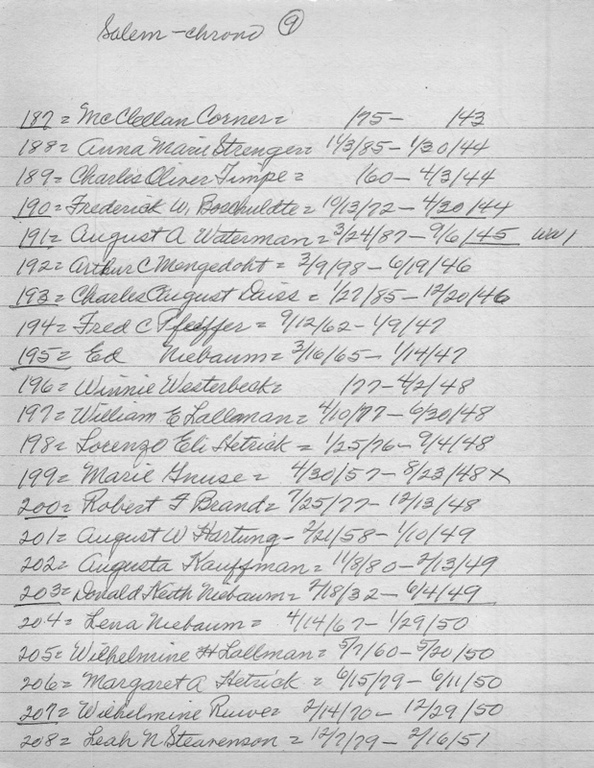 Salem - chrono 9
187 = McClellan Corner = /75 - /43
188 = Anna Marie Strenger = 11/3/85 - 1/30/44
189 = Charles Oliver Timpe = /60 - 4/3/44
190 = Frederick W. Boschuldte = 10/13/72 - 4/20/44
191 = August A Waterman = 3/24/87 - 9/6/45 WW1
192 = Arthur C Mengedoht = 3/9/98 - 6/19/46
193 = Charles August Duiss = 1/27/85 - 12/20/46
194 = Fred C Pfeiffer = 9/12/62 - 1/9/47
195 = Ed Niebaum = 3/16/65 - 1/14/47
196 = Winnie Westerbeck = /77 - 4/2/48
197 = William E Lallman = 4/10/77 - 6/20/48
198 = Lorenzo Eli Hetrick = 1/25/76 - 9/4/48
199 = Marie Gnuse = 4/30/57 - 8/23/48 x
200 = Robert F Brand = 7/25/77 - 12/13/48
201 = August W Hartung - 2/21/58 - 1/10/49
202 = Augusta Kauffman = 11/8/80 - 2/13/49
203 = Donald Keith Niebaum = 7/18/32 - 6/4/49
204 = Lena Niebaum = 4/14/67 - 1/29/50
205 = Wilhelmine H Lallman = 5/7/60 - 5/20/50
206 = Margaret A Hetrick = 6/15/79 - 6/11/50
207 = Wilhelmine Ruwe = 2/14/70 - 12/29/50
208 = Leah N Stearenson = 12/7/79 - 2/16/51